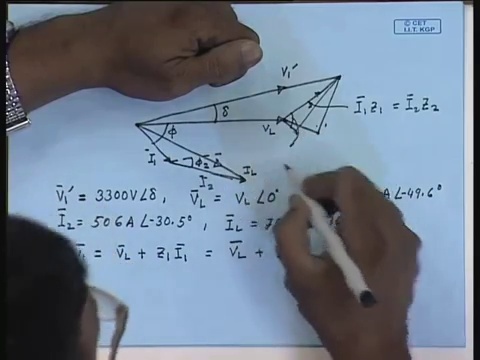 © CET
I.I.T. KGP
V₁′
δ
V_L
Ī₁Z₁ = Ī₂Z₂
φ
Ī₁
φ₂
I₂
I_L
V̄₁′ = 3300V∠δ, V̄_L = V_L∠0° A∠-49.6°
Ī₂ = 506A∠-30.5°, Ī_L =
= V̄_L + Z₁Ī₁ = V̄_L +